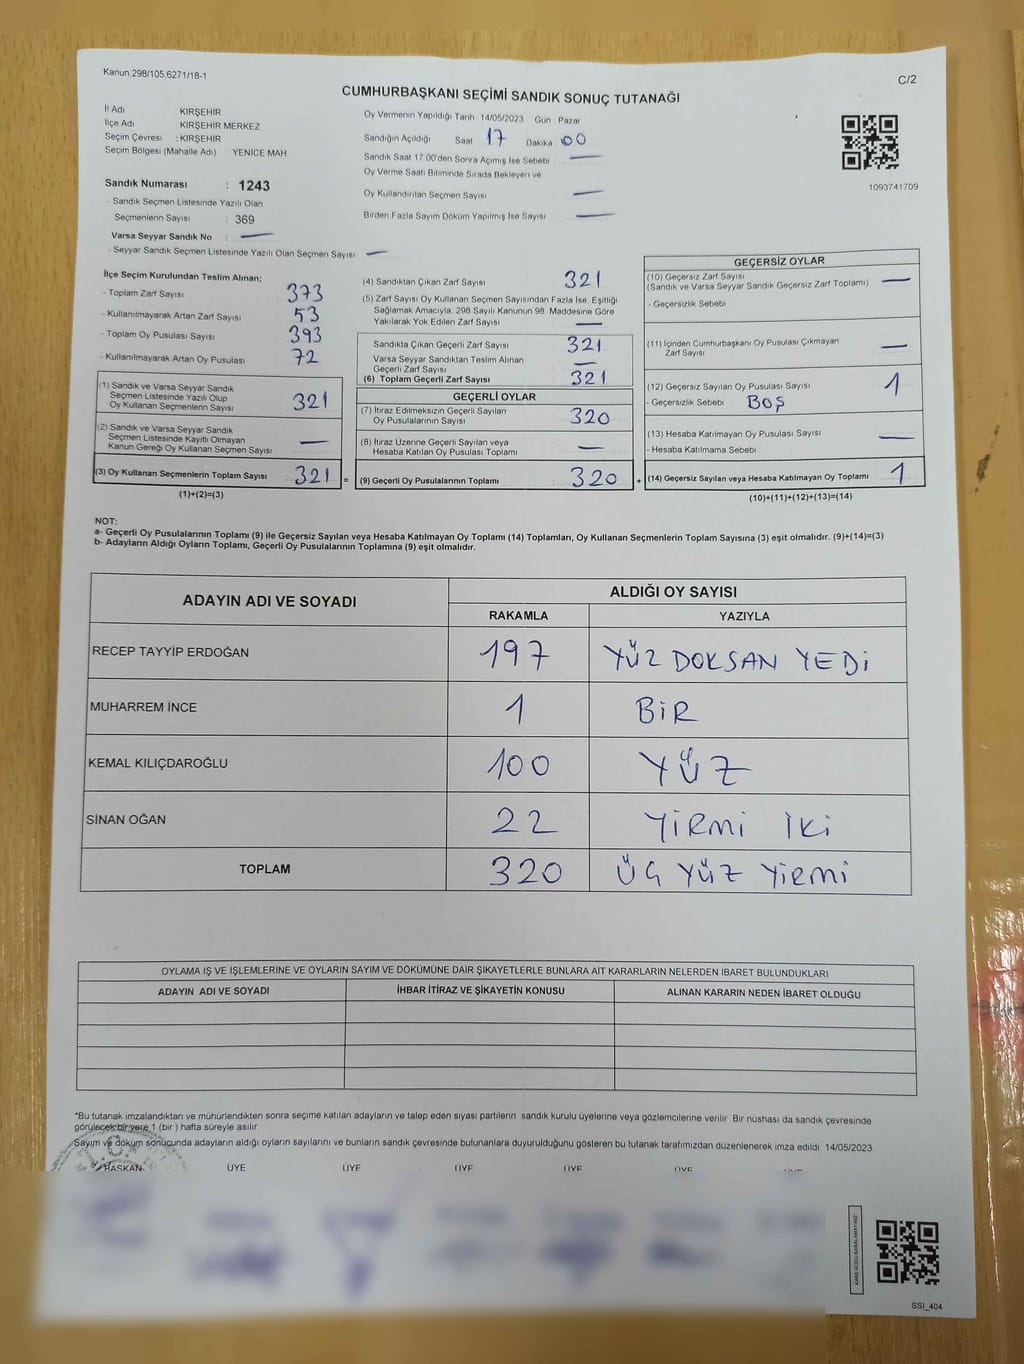 Kanun.298/105.6271/18-1
C/2
CUMHURBAŞKANI SEÇİMİ SANDIK SONUÇ TUTANAĞI
İl Adı : KIRŞEHİR
İlçe Adı : KIRŞEHİR MERKEZ
Seçim Çevresi : KIRŞEHİR
Seçim Bölgesi (Mahalle Adı) YENİCE MAH
Sandık Numarası : 1243
- Sandık Seçmen Listesinde Yazılı Olan
Seçmenlerin Sayısı : 369
Varsa Seyyar Sandık No : —
- Seyyar Sandık Seçmen Listesinde Yazılı Olan Seçmen Sayısı : —
Oy Vermenin Yapıldığı Tarih : 14/05/2023 Gün : Pazar
Sandığın Açıldığı Saat 17 Dakika 00
Sandık Saat 17:00'den Sonra Açılmış İse Sebebi —
Oy Verme Saati Bitiminde Sırada Bekleyen ve
Oy Kullandırılan Seçmen Sayısı —
Birden Fazla Sayım Döküm Yapılmış İse Sayısı —
1093741709
İlçe Seçim Kurulundan Teslim Alınan;
- Toplam Zarf Sayısı 373
- Kullanılmayarak Artan Zarf Sayısı 53
- Toplam Oy Pusulası Sayısı 393
- Kullanılmayarak Artan Oy Pusulası 72
(1) Sandık ve Varsa Seyyar Sandık
Seçmen Listesinde Yazılı Olup
Oy Kullanan Seçmenlerin Sayısı 321
(2) Sandık ve Varsa Seyyar Sandık
Seçmen Listesinde Kayıtlı Olmayan
Kanun Gereği Oy Kullanan Seçmen Sayısı —
(3) Oy Kullanan Seçmenlerin Toplam Sayısı 321 =
(1)+(2)=(3)
(4) Sandıktan Çıkan Zarf Sayısı 321
(5) Zarf Sayısı Oy Kullanan Seçmen Sayısından Fazla İse, Eşitliği
Sağlamak Amacıyla, 298 Sayılı Kanunun 98. Maddesine Göre
Yakılarak Yok Edilen Zarf Sayısı —
Sandıkta Çıkan Geçerli Zarf Sayısı 321
Varsa Seyyar Sandıktan Teslim Alınan
Geçerli Zarf Sayısı —
(6) Toplam Geçerli Zarf Sayısı 321
GEÇERLİ OYLAR
(7) İtiraz Edilmeksizin Geçerli Sayılan
Oy Pusulalarının Sayısı 320
(8) İtiraz Üzerine Geçerli Sayılan veya
Hesaba Katılan Oy Pusulası Toplamı —
(9) Geçerli Oy Pusulalarının Toplamı 320 +
GEÇERSİZ OYLAR
(10) Geçersiz Zarf Sayısı
(Sandık ve Varsa Seyyar Sandık Geçersiz Zarf Toplamı) —
- Geçersizlik Sebebi
(11) İçinden Cumhurbaşkanı Oy Pusulası Çıkmayan
Zarf Sayısı —
(12) Geçersiz Sayılan Oy Pusulası Sayısı 1
- Geçersizlik Sebebi BOŞ
(13) Hesaba Katılmayan Oy Pusulası Sayısı —
- Hesaba Katılmama Sebebi
(14) Geçersiz Sayılan veya Hesaba Katılmayan Oy Toplamı 1
(10)+(11)+(12)+(13)=(14)
NOT:
a- Geçerli Oy Pusulalarının Toplamı (9) ile Geçersiz Sayılan veya Hesaba Katılmayan Oy Toplamı (14) Toplamları, Oy Kullanan Seçmenlerin Toplam Sayısına (3) eşit olmalıdır. (9)+(14)=(3)
b- Adayların Aldığı Oyların Toplamı, Geçerli Oy Pusulalarının Toplamına (9) eşit olmalıdır.
ADAYIN ADI VE SOYADI
ALDIĞI OY SAYISI
RAKAMLA YAZIYLA
RECEP TAYYİP ERDOĞAN 197 YÜZ DOKSAN YEDİ
MUHARREM İNCE 1 BİR
KEMAL KILIÇDAROĞLU 100 YÜZ
SİNAN OĞAN 22 YİRMİ İKİ
TOPLAM 320 ÜÇ YÜZ YİRMİ
OYLAMA İŞ VE İŞLEMLERİNE VE OYLARIN SAYIM VE DÖKÜMÜNE DAİR ŞİKAYETLERLE BUNLARA AİT KARARLARIN NELERDEN İBARET BULUNDUKLARI
ADAYIN ADI VE SOYADI İHBAR İTİRAZ VE ŞİKAYETİN KONUSU ALINAN KARARIN NEDEN İBARET OLDUĞU
*Bu tutanak imzalandıktan ve mühürlendikten sonra seçime katılan adayların ve talep eden siyasi partilerin sandık kurulu üyelerine veya gözlemcilerine verilir. Bir nüshası da sandık çevresinde
görülecek bir yere 1 (bir ) hafta süreyle asılır.
Sayım ve döküm sonucunda adayların aldığı oyların sayılarını ve bunların sandık çevresinde bulunanlara duyurulduğunu gösteren bu tutanak tarafımızdan düzenlenerek imza edildi. 14/05/2023
BAŞKAN ÜYE ÜYE ÜYE ÜYE ÜYE
KARE KODU KARALAMAYINIZ
SSI_404